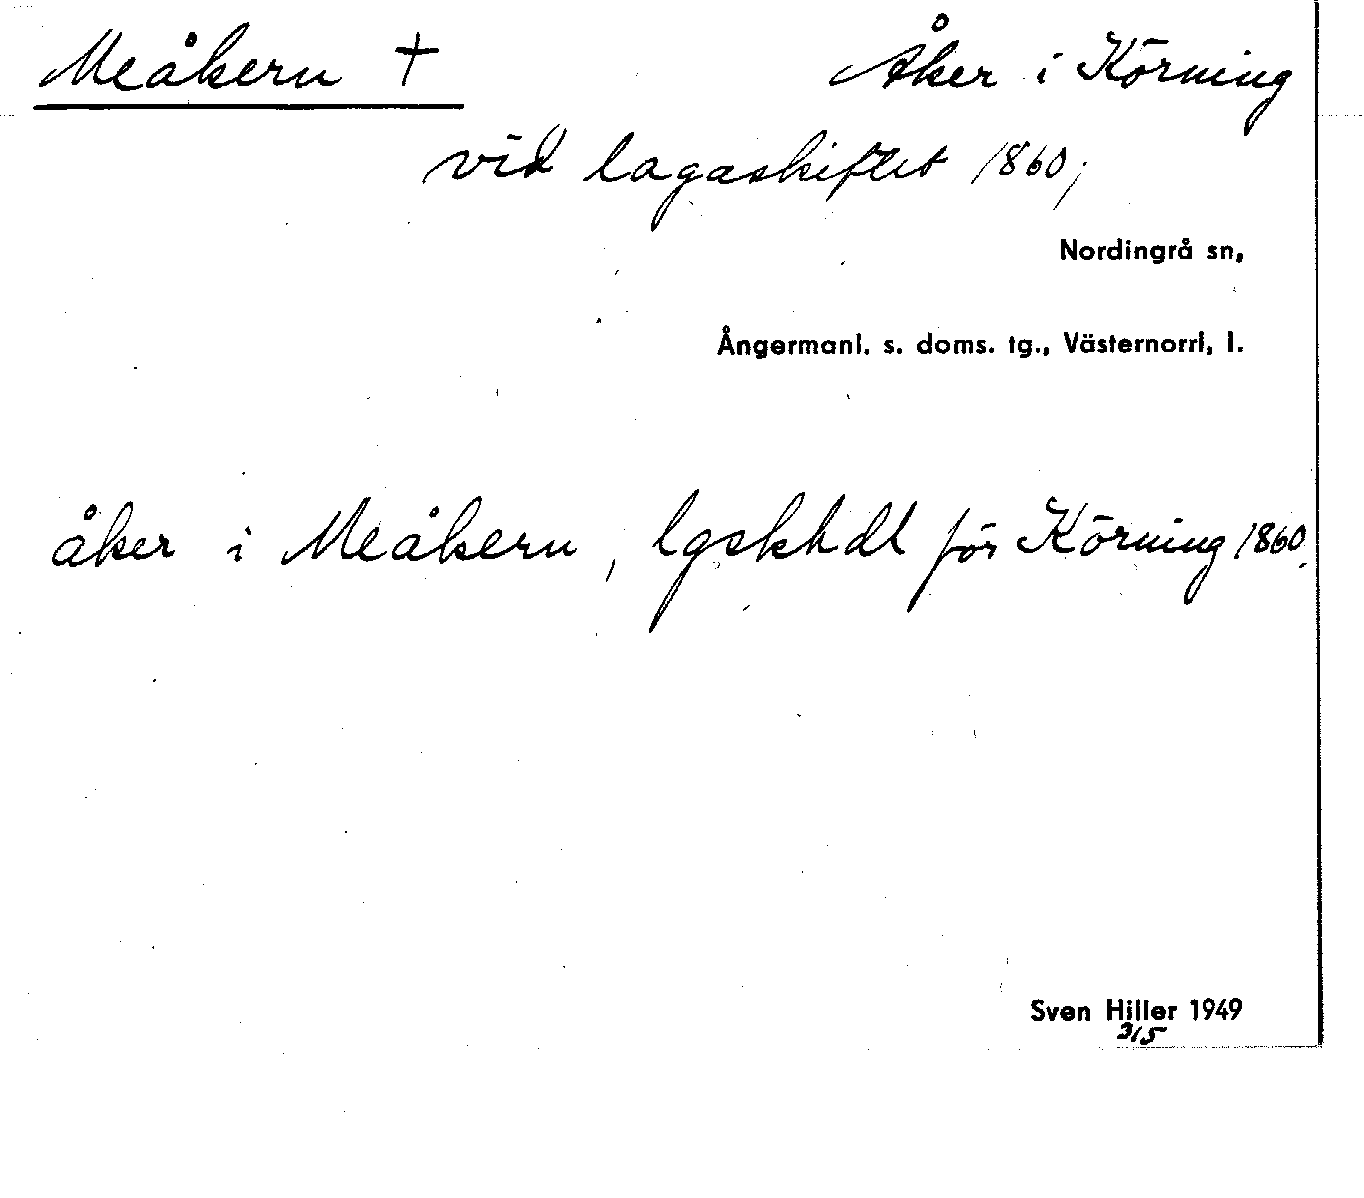 Meåkern † Åker i Körning
vid lagaskiftet 1860;
Nordingrå sn,
Ångermanl. s. doms. tg., Västernorrl, l.
åker i Meåkern, lgskhdl för Körning 1860.
Sven Hiller 1949
3/5